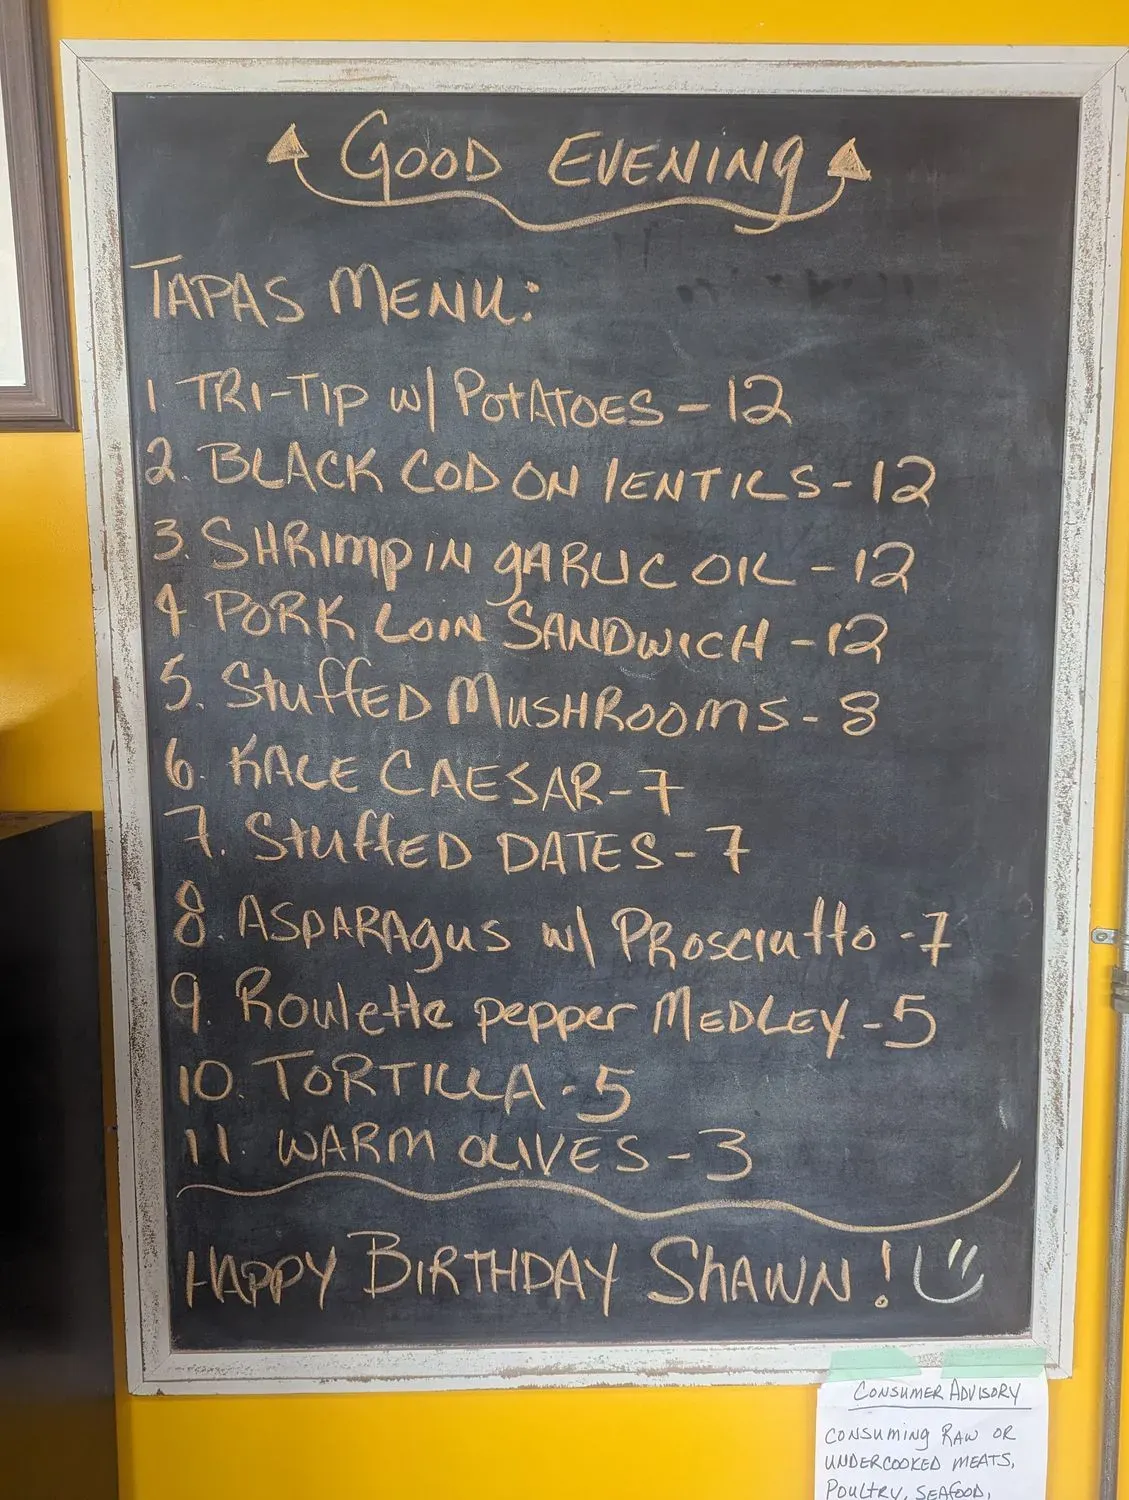 GOOD EVENING
TAPAS MENU:
1 TRI-TIP w/ POTATOES - 12
2. BLACK COD ON LENTILS - 12
3. SHRIMP IN GARLIC OIL - 12
4 PORK LOIN SANDWICH - 12
5. STUFFED MUSHROOMS - 8
6. KALE CAESAR - 7
7. STUFFED DATES - 7
8. ASPARAGUS w/ PROSCIUTTO - 7
9. Roulette pepper MEDLEY - 5
10. TORTILLA - 5
11. WARM OLIVES - 3
HAPPY BIRTHDAY SHAWN!
CONSUMER ADVISORY
CONSUMING RAW OR
UNDERCOOKED MEATS,
POULTRY, SEAFOOD,